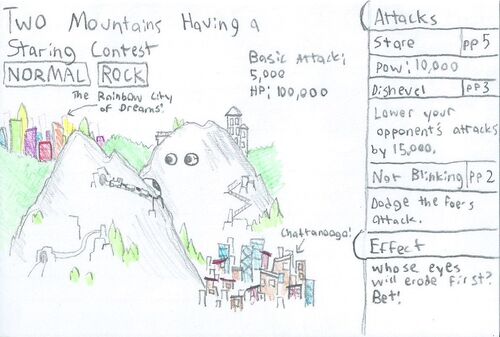 Two Mountains Having a
Staring Contest
NORMAL ROCK
Basic Attack:
5,000
HP: 100,000
The Rainbow City
of Dreams!
Chattanooga!
Attacks
Stare PP 5
Pow: 10,000
Dishevel PP 3
Lower your
opponent's attacks
by 15,000.
Not Blinking PP 2
Dodge the foe's
attack.
Effect
Whose eyes
will erode first?
Bet!